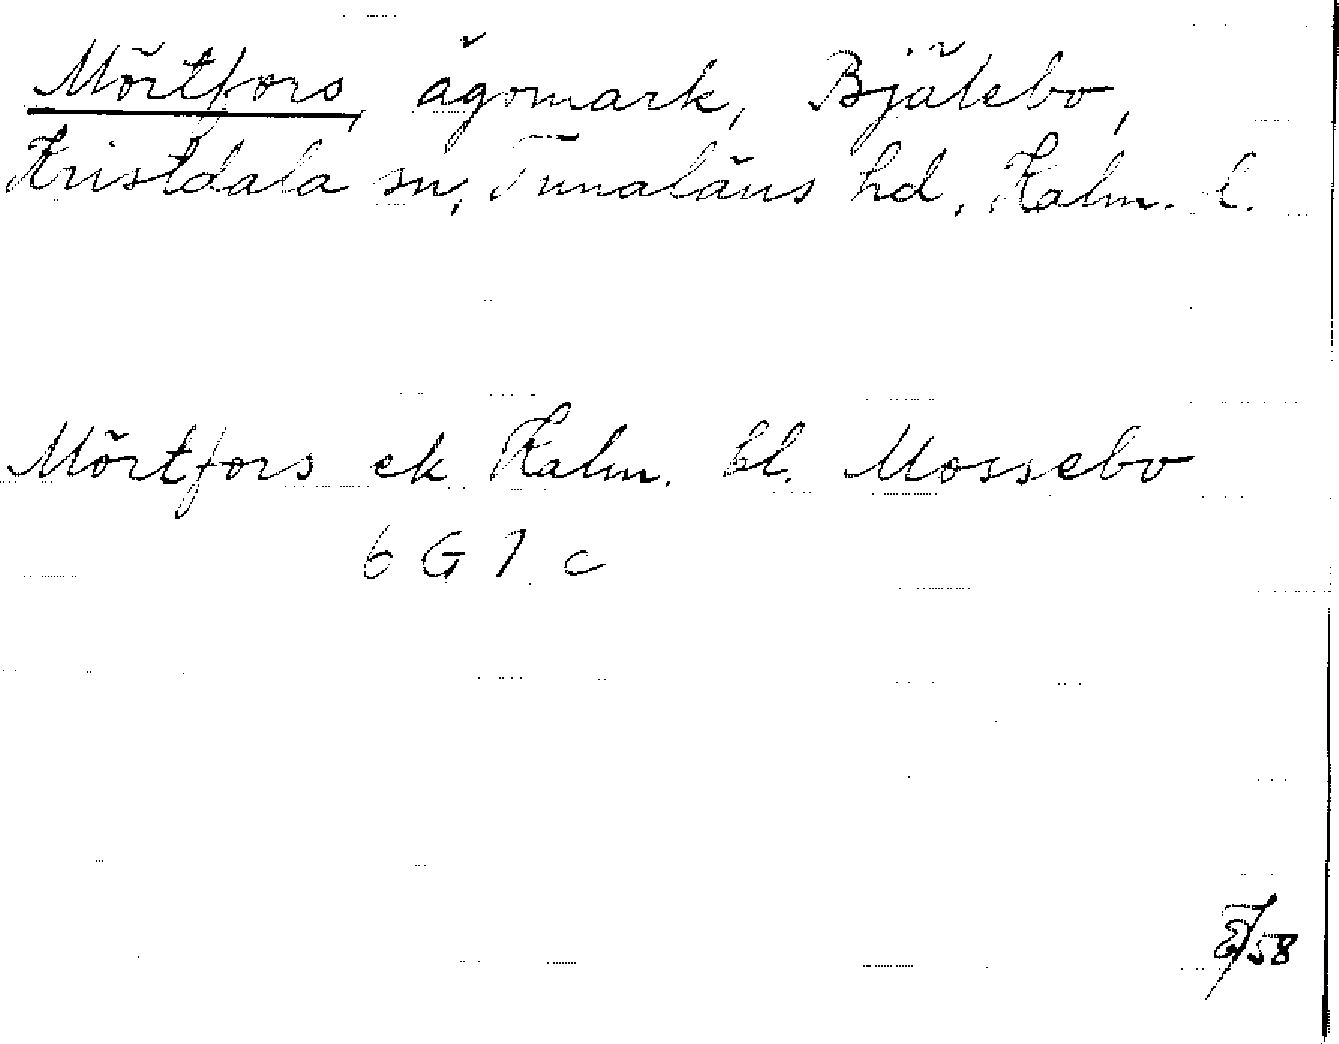 Mörtfors, ägomark, Bjälebo,
Kristdala sn, Tunaläns hd, Kalm. l.
Mörtfors ek Kalm. bl. Mossebo
6 G 7 c
/58